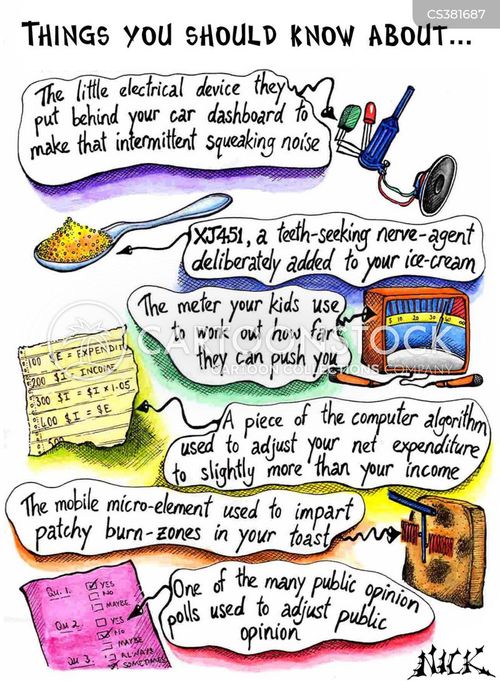 CS381687
THINGS YOU SHOULD KNOW ABOUT...
The little electrical device they
put behind your car dashboard to
make that intermittent squeaking noise
XJ451, a teeth-seeking nerve-agent
deliberately added to your ice-cream
The meter your kids use
to work out how far
they can push you
10 20 30
CARTOONSTOCK
CARTOON COLLECTIONS COMPANY
100 E = EXPENDIT
200 $I = INCOME
300 $I = $I x 1.05
400 $I = $E
500
A piece of the computer algorithm
used to adjust your net expenditure
to slightly more than your income
The mobile micro-element used to impart
patchy burn-zones in your toast
QU. 1. YES
NO
MAYBE
QU 2 YES
NO
MAYBE
QU 3 ALWAYS
SOMETIMES
One of the many public opinion
polls used to adjust public
opinion
NICK